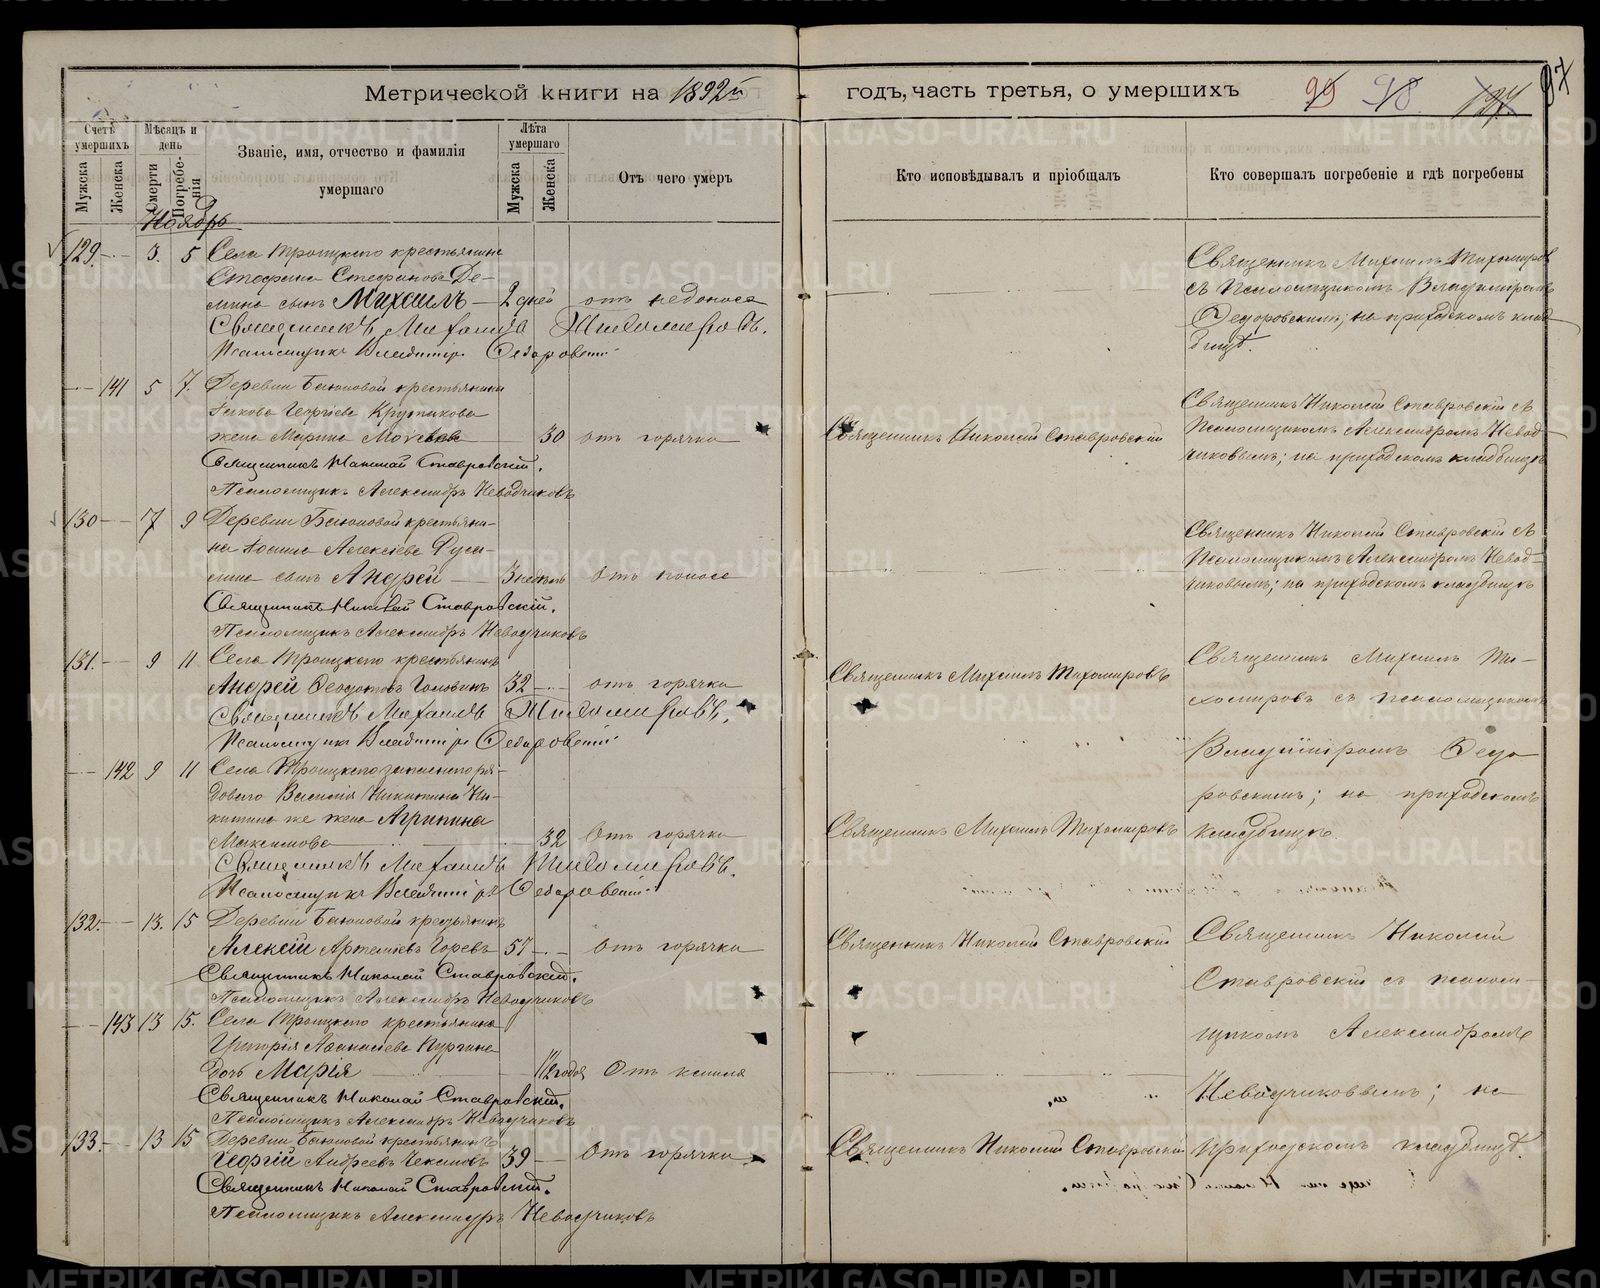 Метрической книги на 1892й
годъ, часть третья, о умершихъ
95 98 97
Счетъ умершихъ
Мужска
Женска
Мѣсяцъ и день
Смерти
Погребенія
Званіе, имя, отчество и фамилія умершаго
Лѣта умершаго
Мужска
Женска
Отъ чего умеръ
Кто исповѣдывалъ и пріобщалъ
Кто совершалъ погребеніе и гдѣ погребены
Ноябрь
129. 3. 5 Села Троицкаго крестьянина
Стефана Стефанова Де-
мина сынъ Михаилъ 2 дней отъ недоноса
Священникъ Михаилъ Тихомировъ.
Псаломщикъ Владиміръ Федоровскій
Священникъ Михаилъ Тихомировъ
съ псаломщикомъ Владиміромъ
Федоровскимъ; на приходскомъ клад-
бищѣ.
141 5 7 Деревни Баюновой крестьянина
Іакова Георгіева Крутикова
жена Марина 30 отъ горячки
Священникъ Николай Ставровскій.
Псаломщикъ Александръ Неводчиковъ
Священникъ Николай Ставровскій
Священникъ Николай Ставровскій съ
Псаломщикомъ Александромъ Невод-
чиковымъ; на приходскомъ кладбищѣ
130 7 9 Деревни Баюновой крестьяни-
на Іоанна Алексѣева Руса-
сынъ Андрей 3 недѣль отъ поноса
Священникъ Николай Ставровскій.
Псаломщикъ Александръ Неводчиковъ
Священникъ Николай Ставровскій съ
Псаломщикомъ Александромъ Невод-
чиковымъ; на приходскомъ кладбищѣ
131. 9 11 Села Троицкаго крестьянинъ
Андрей Феодотовъ Головинъ 32 отъ горячки
Священникъ Михаилъ Тихомировъ.
Псаломщикъ Владиміръ Федоровскій
Священникъ Михаилъ Тихомировъ
Священникъ Михаилъ Ти-
хомировъ съ псаломщикомъ
Владиміромъ Федо-
ровскимъ; на приходскомъ
кладбищѣ.
142 9 11 Села Троицкаго запаснаго ря-
доваго Василія Никитина Ни-
китина же жена Агрипина
Максимова 32 Отъ горячки
Священникъ Михаилъ Тихомировъ.
Псаломщикъ Владиміръ Федоровскій
Священникъ Михаилъ Тихомировъ
132. 13. 15 Деревни Баюновой крестьянинъ
Алексій Артемьевъ Горевъ 57 Отъ горячки
Священникъ Николай Ставровскій.
Псаломщикъ Александръ Неводчиковъ
Священникъ Николай Ставровскій
Священникъ Николай
Ставровскій съ псалом-
щикомъ Александромъ
Неводчиковымъ; на
приходскомъ кладбищѣ.
143 13 15. Села Троицкаго крестьянина
Григорія Аѳанасьева Пургина
дочь Марія 1½ года Отъ кашля
Священникъ Николай Ставровскій.
Псаломщикъ Александръ Неводчиковъ
133. 13 15 Деревни Баюновой крестьянинъ
Георгій Андреевъ Чекановъ 39 Отъ горячки
Священникъ Николай Ставровскій.
Псаломщикъ Александръ Неводчиковъ
Священникъ Николай Ставровскій
METRIKI.GASO-URAL.RU